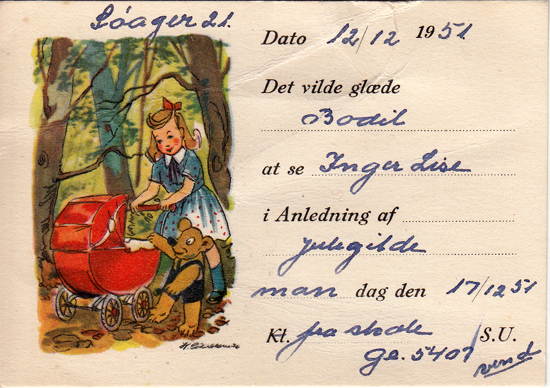 Søager 21.
Dato 12/12 1951
Det vilde glæde
Bodil
at se Inger Lise
i Anledning af
julegilde
man dag den 17/12 51
Kl. fra skole S.U.
Ge. 5401
vend